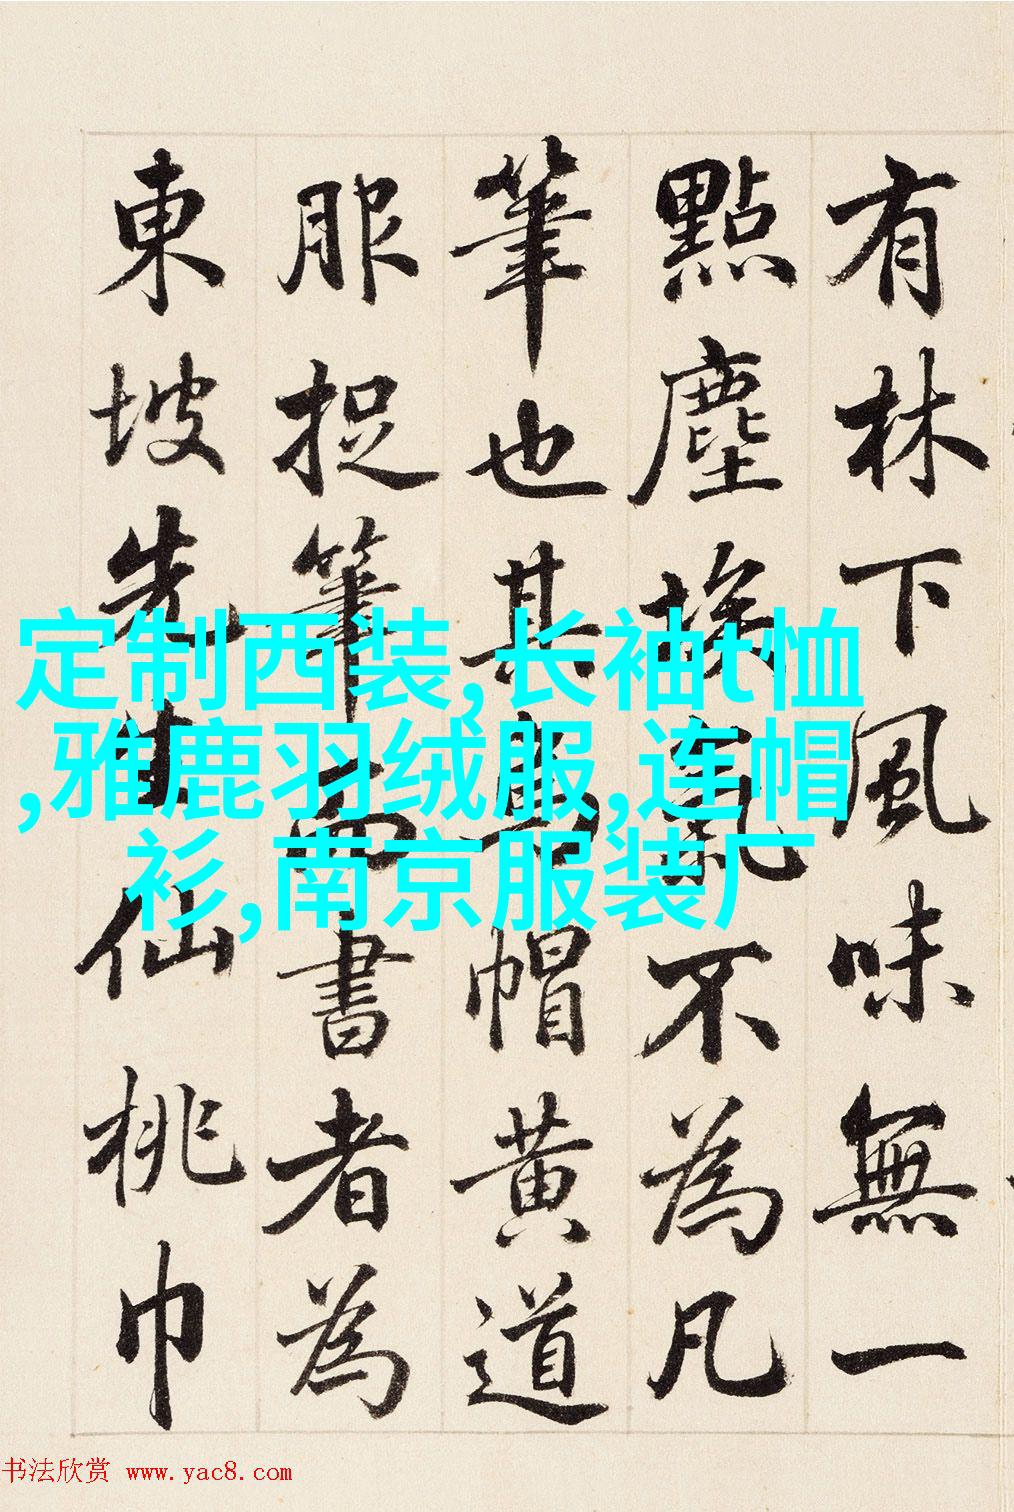 有林下風味無一
點塵埃氣不為凡
筆也其烏帽黃道
服捉筆而書者為
東坡先生仙桃巾
定制西装,长袖t恤
,雅鹿羽绒服,连帽
衫,南京服装厂
书法欣赏 www.yac8.com